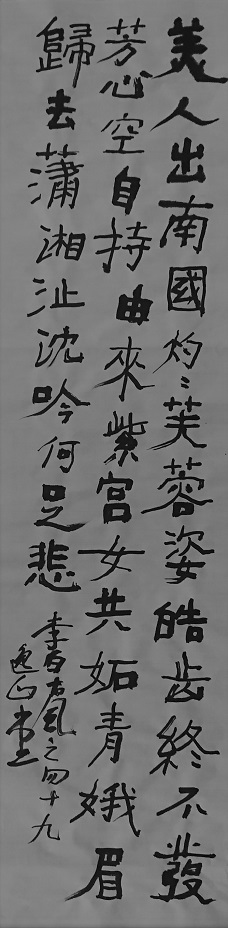 美人出南國灼〻芙蓉姿皓齒終不發
芳心空自持由來紫宮女共妬青娥眉
歸去瀟湘沚沈吟何足悲
李白古風之四十九